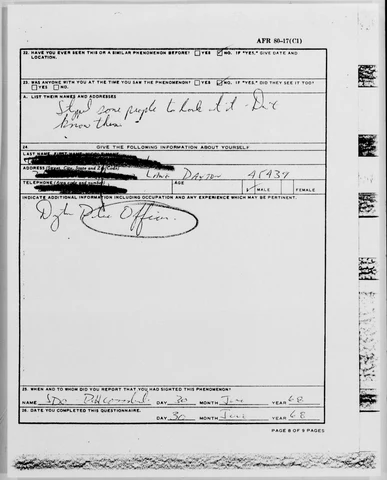 AFR 80-17(C1)
22. HAVE YOU EVER SEEN THIS OR A SIMILAR PHENOMENON BEFORE? YES NO. IF "YES," GIVE DATE AND
LOCATION.
23. WAS ANYONE WITH YOU AT THE TIME YOU SAW THE PHENOMENON? YES NO. IF "YES," DID THEY SEE IT TOO?
YES NO
A. LIST THEIR NAMES AND ADDRESSES
Stopped some people to look at it - Don't
know them
24. GIVE THE FOLLOWING INFORMATION ABOUT YOURSELF
LAST NAME, FIRST NAME,
ADDRESS (Street, City, State and Zip Code)
Dayton 45439
TELEPHONE (Area code and number) AGE MALE FEMALE
INDICATE ADDITIONAL INFORMATION INCLUDING OCCUPATION AND ANY EXPERIENCE WHICH MAY BE PERTINENT.
Police Officer
25. WHEN AND TO WHOM DID YOU REPORT THAT YOU HAD SIGHTED THIS PHENOMENON?
NAME SDO DAY 30 MONTH June YEAR 68
26. DATE YOU COMPLETED THIS QUESTIONNAIRE. DAY 30 MONTH June YEAR 68
PAGE 8 OF 9 PAGES